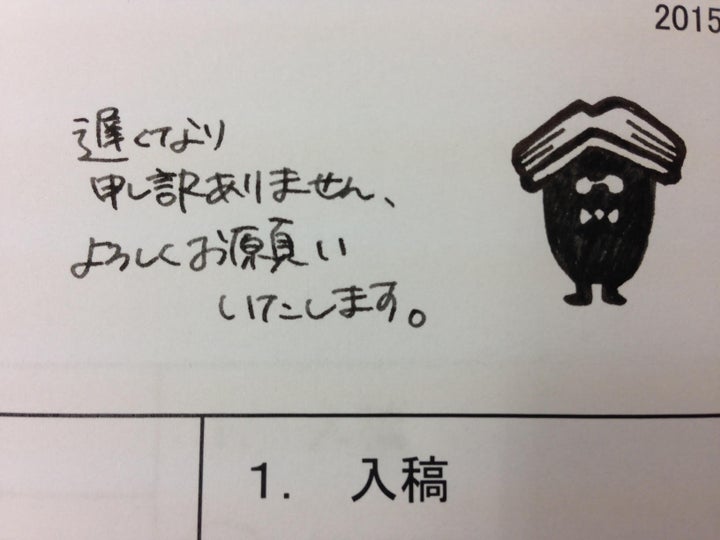 2015
遅くなり
申し訳ありません、
よろしくお願い
いたします。
1. 入稿